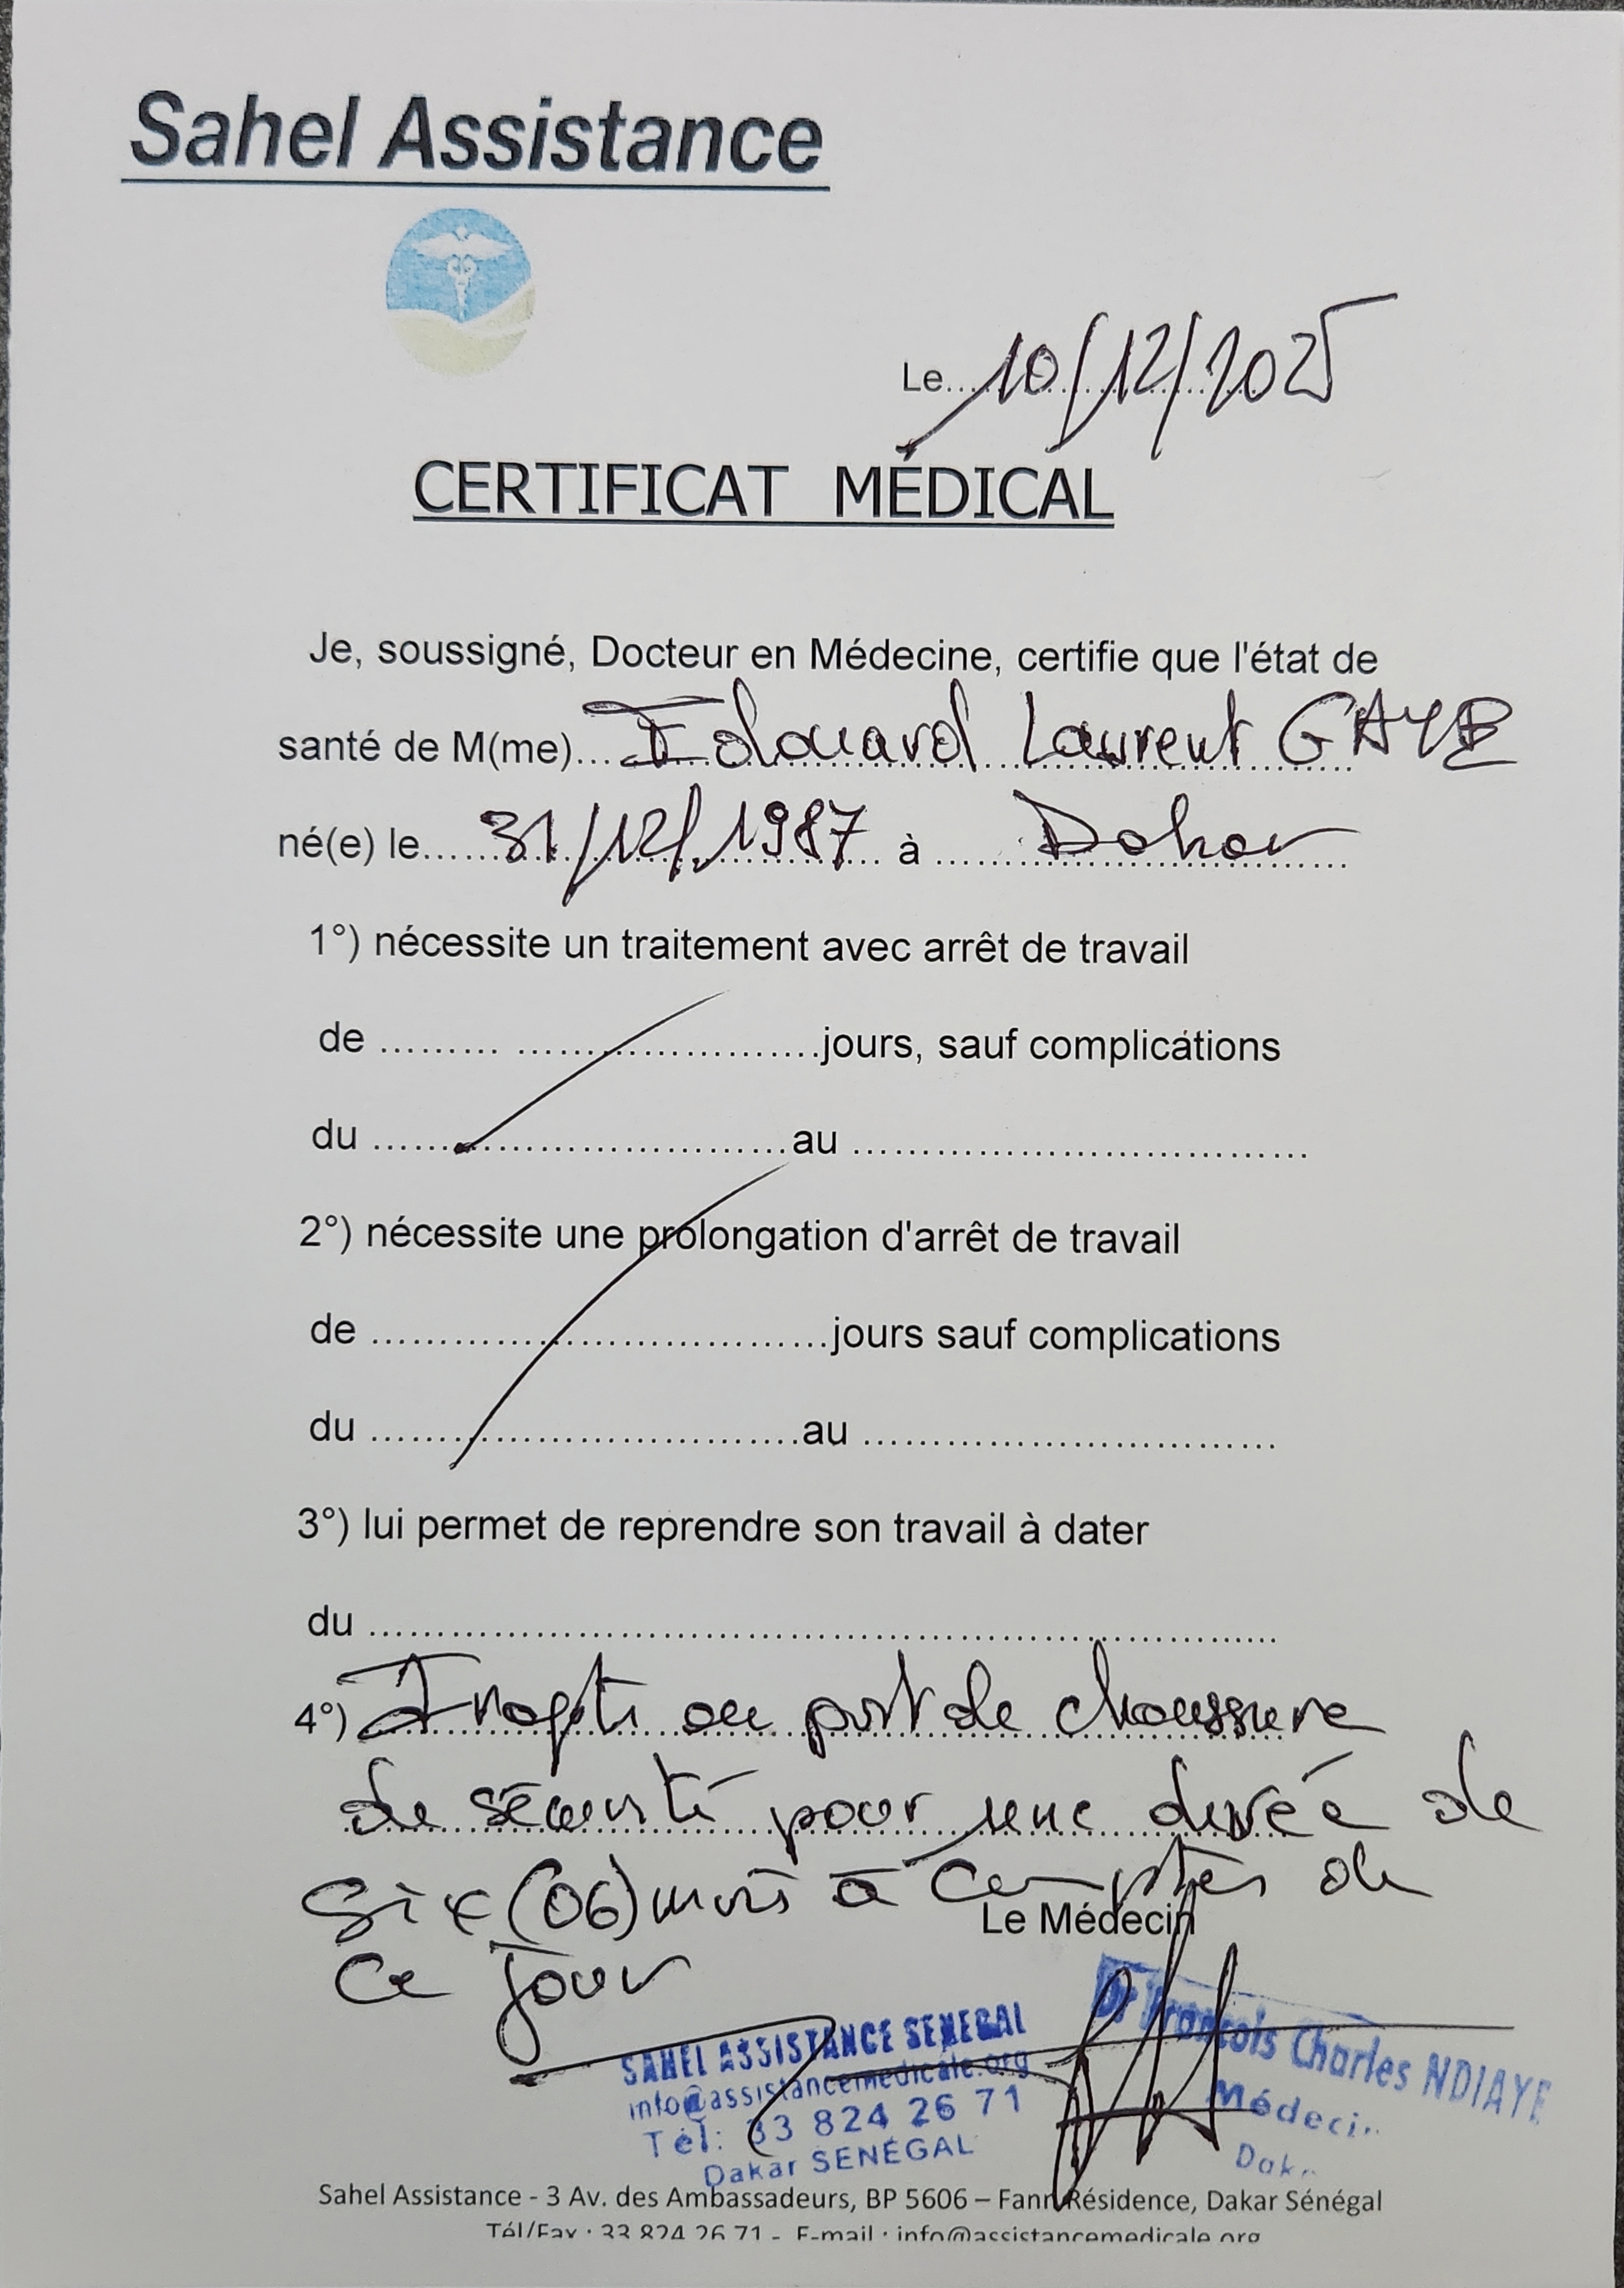 Sahel Assistance
Le....10/12/2025
CERTIFICAT MÉDICAL
Je, soussigné, Docteur en Médecine, certifie que l'état de
santé de M(me)... Edouard Laurent GAYE
né(e) le...... 31/12/1987 à ...... Dakar
1°) nécessite un traitement avec arrêt de travail
de ......... ..........................jours, sauf complications
du ....................................au .......................................
2°) nécessite une prolongation d'arrêt de travail
de .......................................jours sauf complications
du .....................................au ...................................
3°) lui permet de reprendre son travail à dater
du ..............................................................................
4°) Inapte au port de chaussure
de sécurité pour une durée de
six (06) mois à compter de
Le Médecin
ce jour
SAHEL ASSISTANCE SENEGAL
info@assistancemedicale.org
Tél: 33 824 26 71
Dakar SENÉGAL
Dr François Charles NDIAYE
Médecin
Dakar
Sahel Assistance - 3 Av. des Ambassadeurs, BP 5606 – Fann Résidence, Dakar Sénégal
Tél/Fax : 33 824 26 71 - E-mail : info@assistancemedicale.org